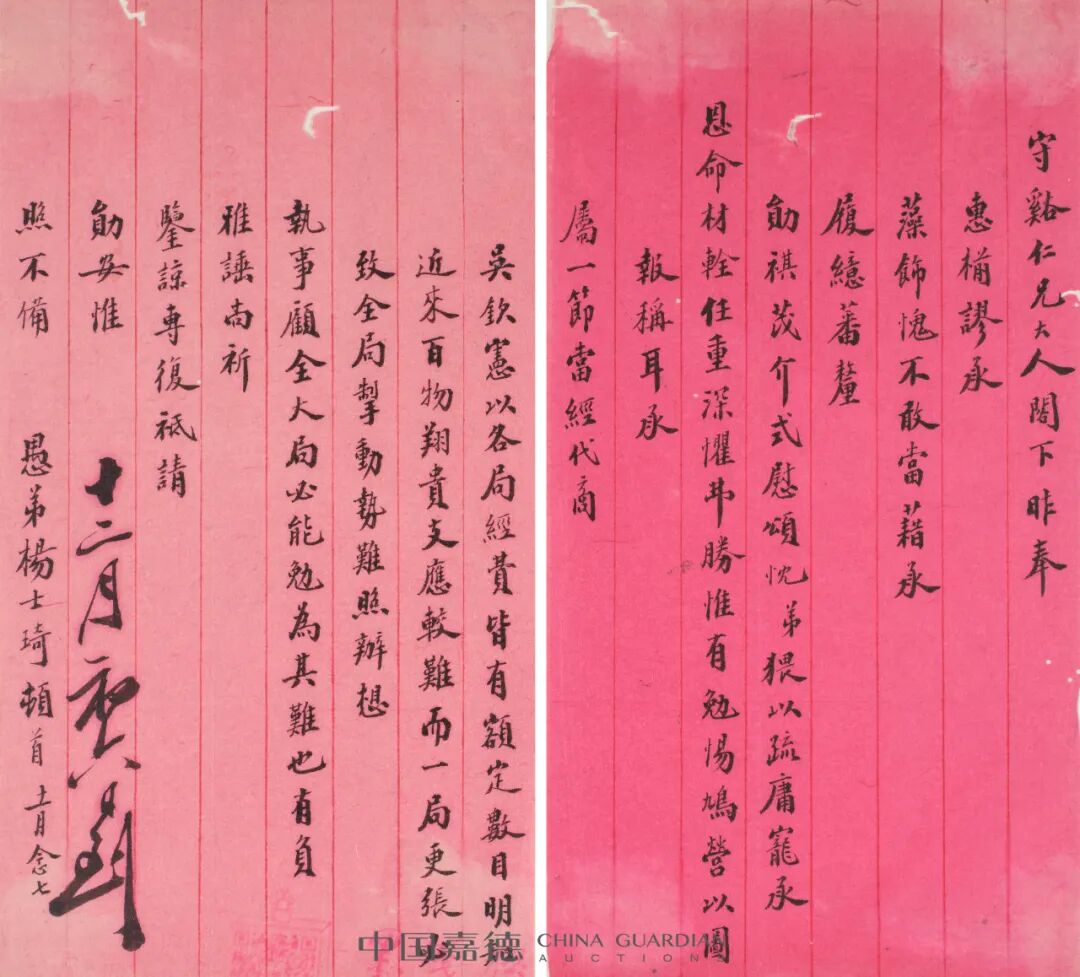 守谿仁兄大人閣下昨奉
惠椾謬承
藻飾愧不敢當藉承
履繶蕃釐
勛祺茂介式慰頌忱弟猥以疏庸寵承
恩命材輇任重深懼弗勝惟有勉惕鳩營以圖
報稱耳承
屬一節當經代商
吳欽憲以各局經費皆有額定數目明知
近來百物翔貴支應較難而一局更張必
致全局掣動勢難照辦想
執事顧全大局必能勉為其難也有負
雅諈尚祈
鑒諒專復祇請
勛安惟
照不備
愚弟楊士琦頓首 十一月念七
十二月初八到
中国嘉德 CHINA GUARDIAN AUCTIONS